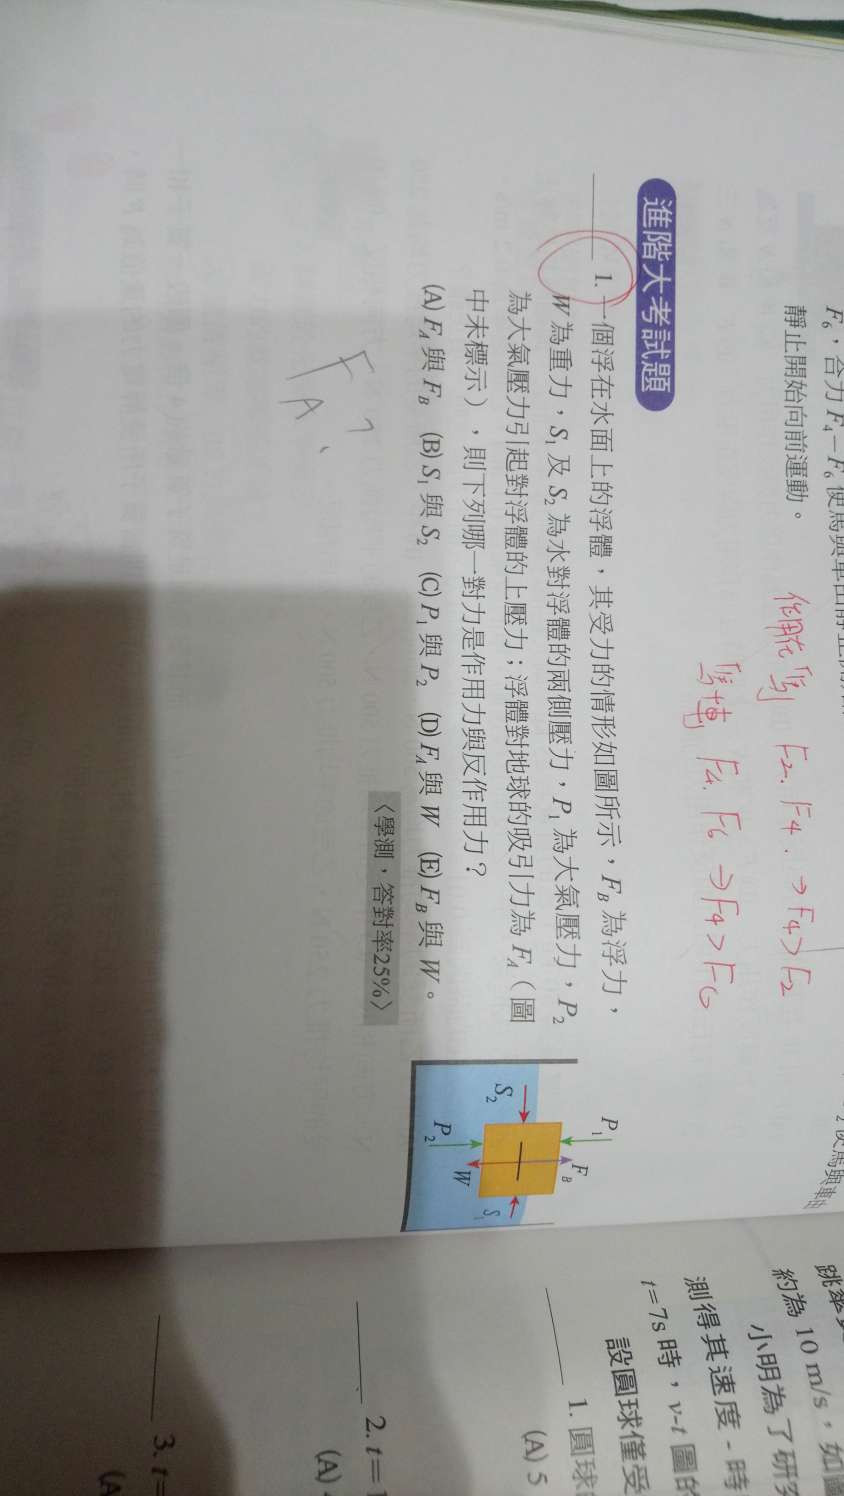 F₆，合力F₄－F₆使馬與車由靜止開始
靜止開始向前運動。
馬 F2. F4. → F4>F2
F4. F6 → F4>F6
進階大考試題
1. 一個浮在水面上的浮體，其受力的情形如圖所示，F_B為浮力，
W為重力，S₁及S₂為水對浮體的兩側壓力，P₁為大氣壓力，P₂
為大氣壓力引起對浮體的上壓力；浮體對地球的吸引力為F_A（圖
中未標示），則下列哪一對力是作用力與反作用力？
(A)F_A與F_B (B)S₁與S₂ (C)P₁與P₂ (D)F_A與W (E)F_B與W。
〈學測，答對率25%〉
F_A ?
P₁
F_B
S₂
S₁
P₂
W
約為10 m/s，如
小明為了研究
測得其速度-時
t=7s時，v-t圖的
設圓球僅受
1. 圓球
(A) 5
2. t=1
(A)
3. t=
(A)